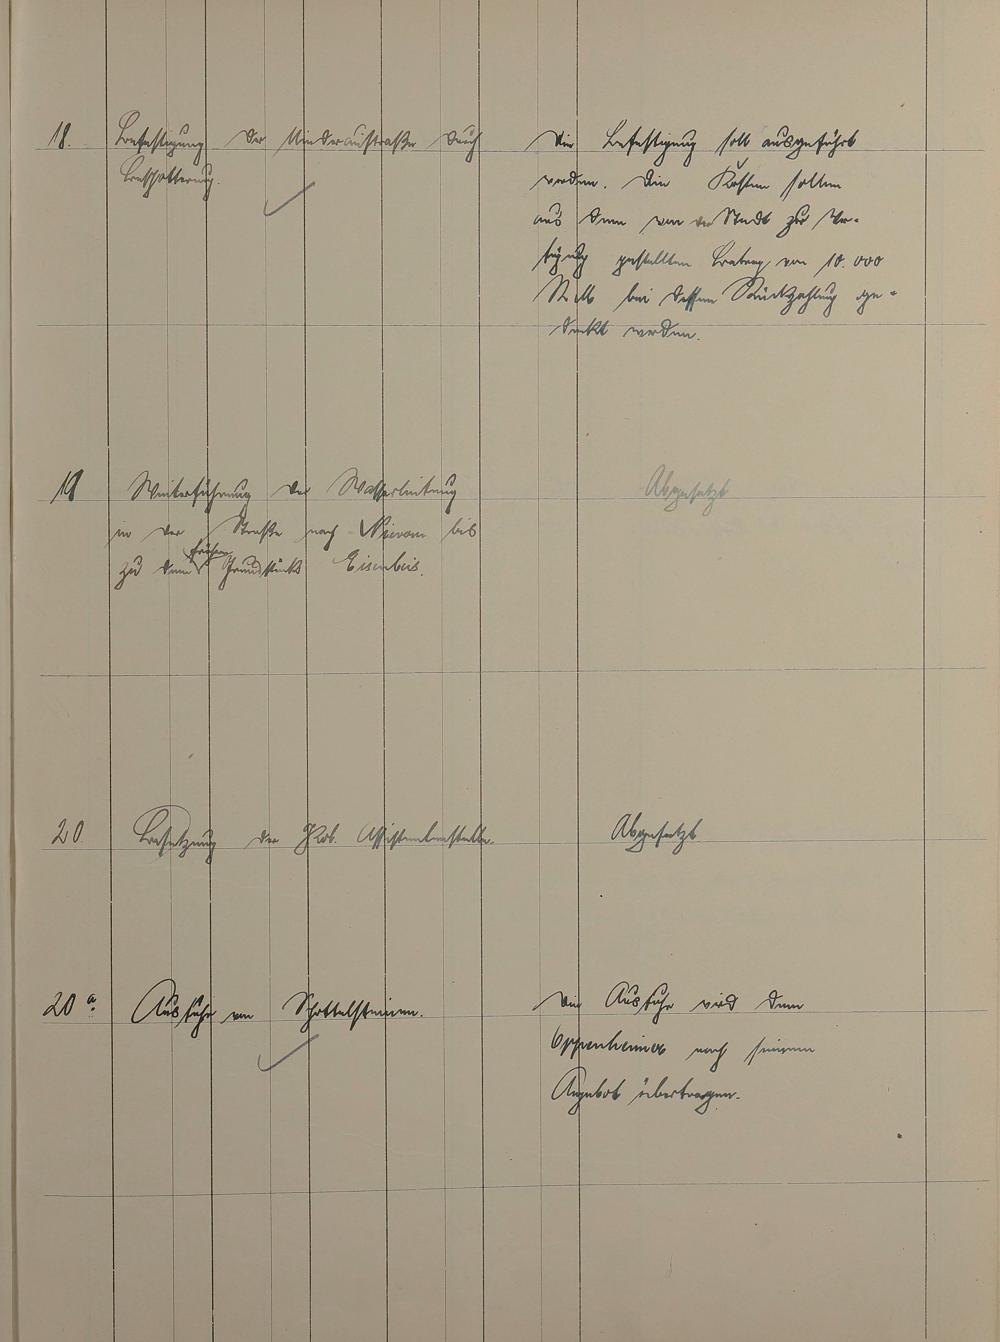 18. Befestigung der Niederaustraße durch
Beschotterung.
Die Befestigung soll ausgeführt
werden. Die Kosten sollen
aus dem von der Stadt zur Ver-
fügung gestellten Betrag von 10.000
Mk bei dessen Rückzahlung ge-
deckt werden.
19 Weiterführung der Wasserleitung
in der Straße nach Nievern bis
zu dem früheren Grundstück Eisenbeis.
Abgesetzt
20. Besetzung der Assistentenstelle.
Abgesetzt
20a. Ausfuhr von Schottelsteinen.
Die Ausfuhr wird dem
Oppenheimer nach seinem
Angebot übertragen.